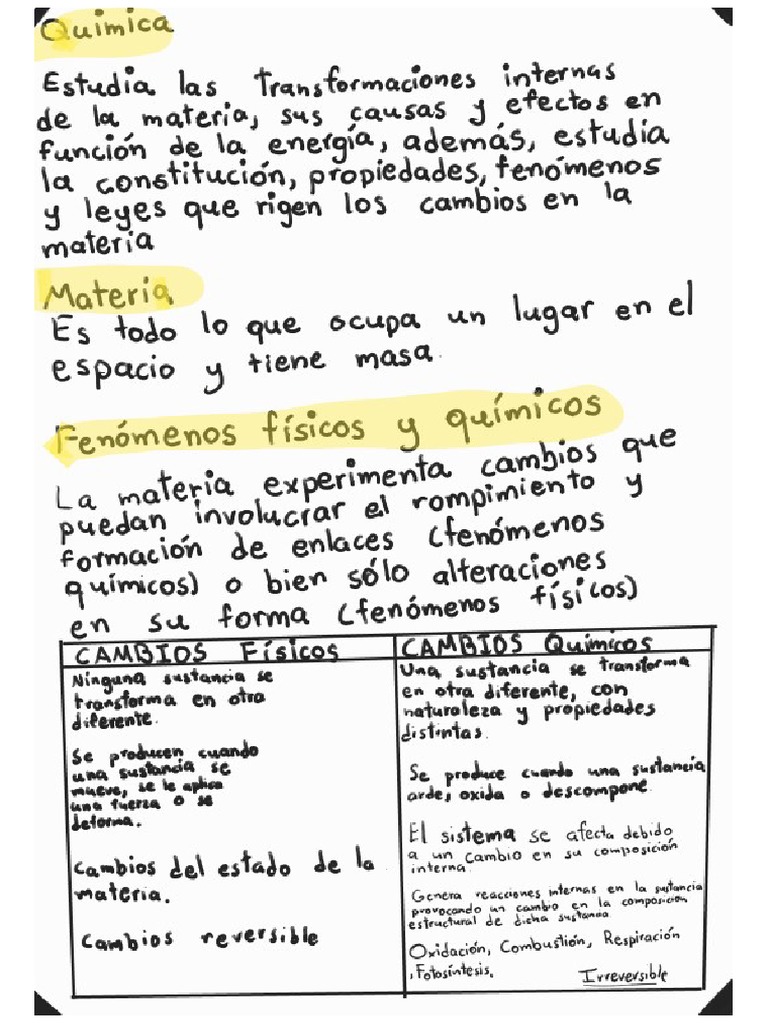 Quimica
Estudia las Transformaciones internas
de la materia, sus causas y efectos en
función de la energía, además, estudia
la constitución, propiedades, fenómenos
y leyes que rigen los cambios en la
materia
Materia
Es todo lo que ocupa un lugar en el
espacio y tiene masa.
Fenómenos físicos y químicos
La materia experimenta cambios que
puedan involucrar el rompimiento y
formación de enlaces (fenómenos
químicos) o bien sólo alteraciones
en su forma (fenómenos físicos)
CAMBIOS Físicos
Ninguna sustancia se
transforma en otra
diferente.
Se producen cuando
una sustancia se
mueve, se le aplica
una fuerza o se
deforma.
Cambios del estado de la
materia.
Cambios reversible
CAMBIOS Químicos
Una sustancia se transforma
en otra diferente, con
naturaleza y propiedades
distintas.
Se produce cuando una sustancia
arde, oxida o descompone
El sistema se afecta debido
a un cambio en su composición
interna
Genera reacciones internas en la sustancia
provocando un cambio en la composicion
estructural de dicha sustancia
Oxidación, Combustión, Respiración
, Fotosíntesis.
Irreversible